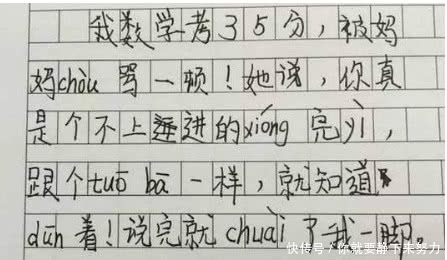 我数学考35分，被妈
妈chòu 骂一顿！她说，你真
是个不上进的xióng 完yì，
跟个tuō bā 一样，就知道
dūn 着！说完就 chuài 了我一脚。
快传号/你就要静下来努力